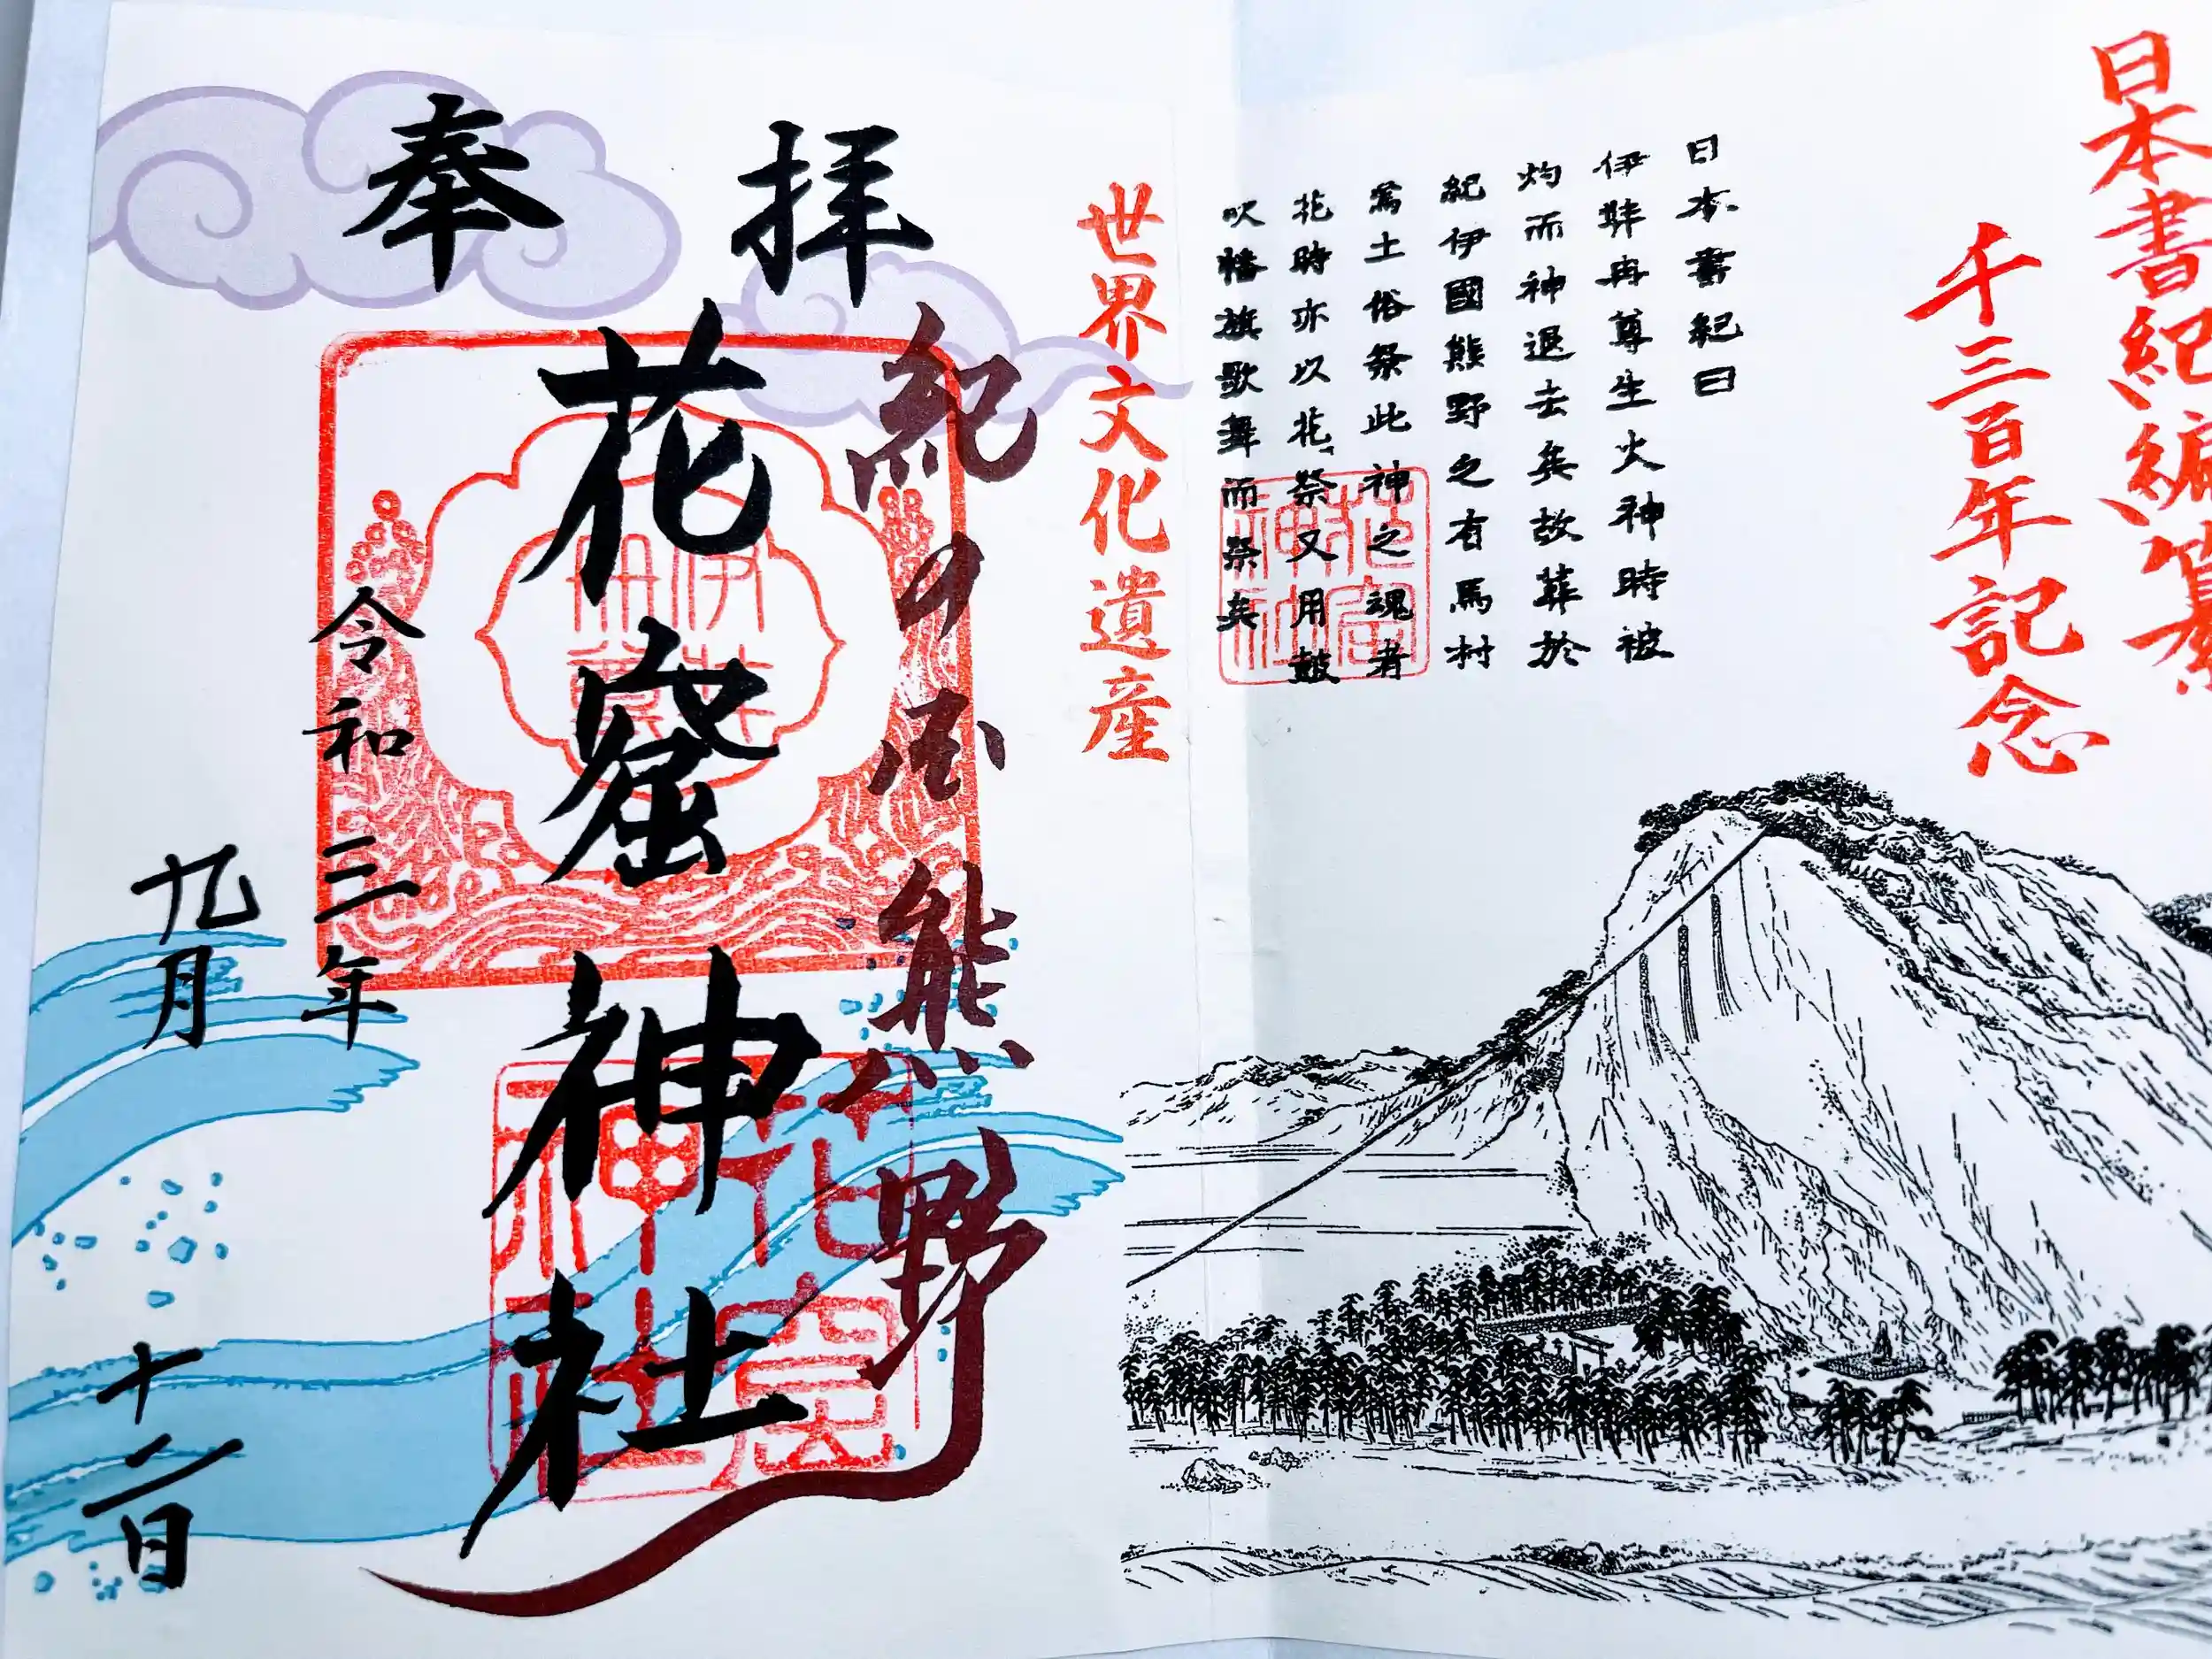 日本書紀編纂
千三百年記念
日本書紀曰
伊弉冉尊生火神時被
灼而神退去矣故葬於
紀伊國熊野之有馬村
焉土俗祭此神之魂者
花時亦以花祭又用鼓
吹幡旗歌舞而祭矣
花窟
神社
世界文化遺産
奉拝
紀の国熊野
花窟神社
花窟
神社
令和三年
九月十二日